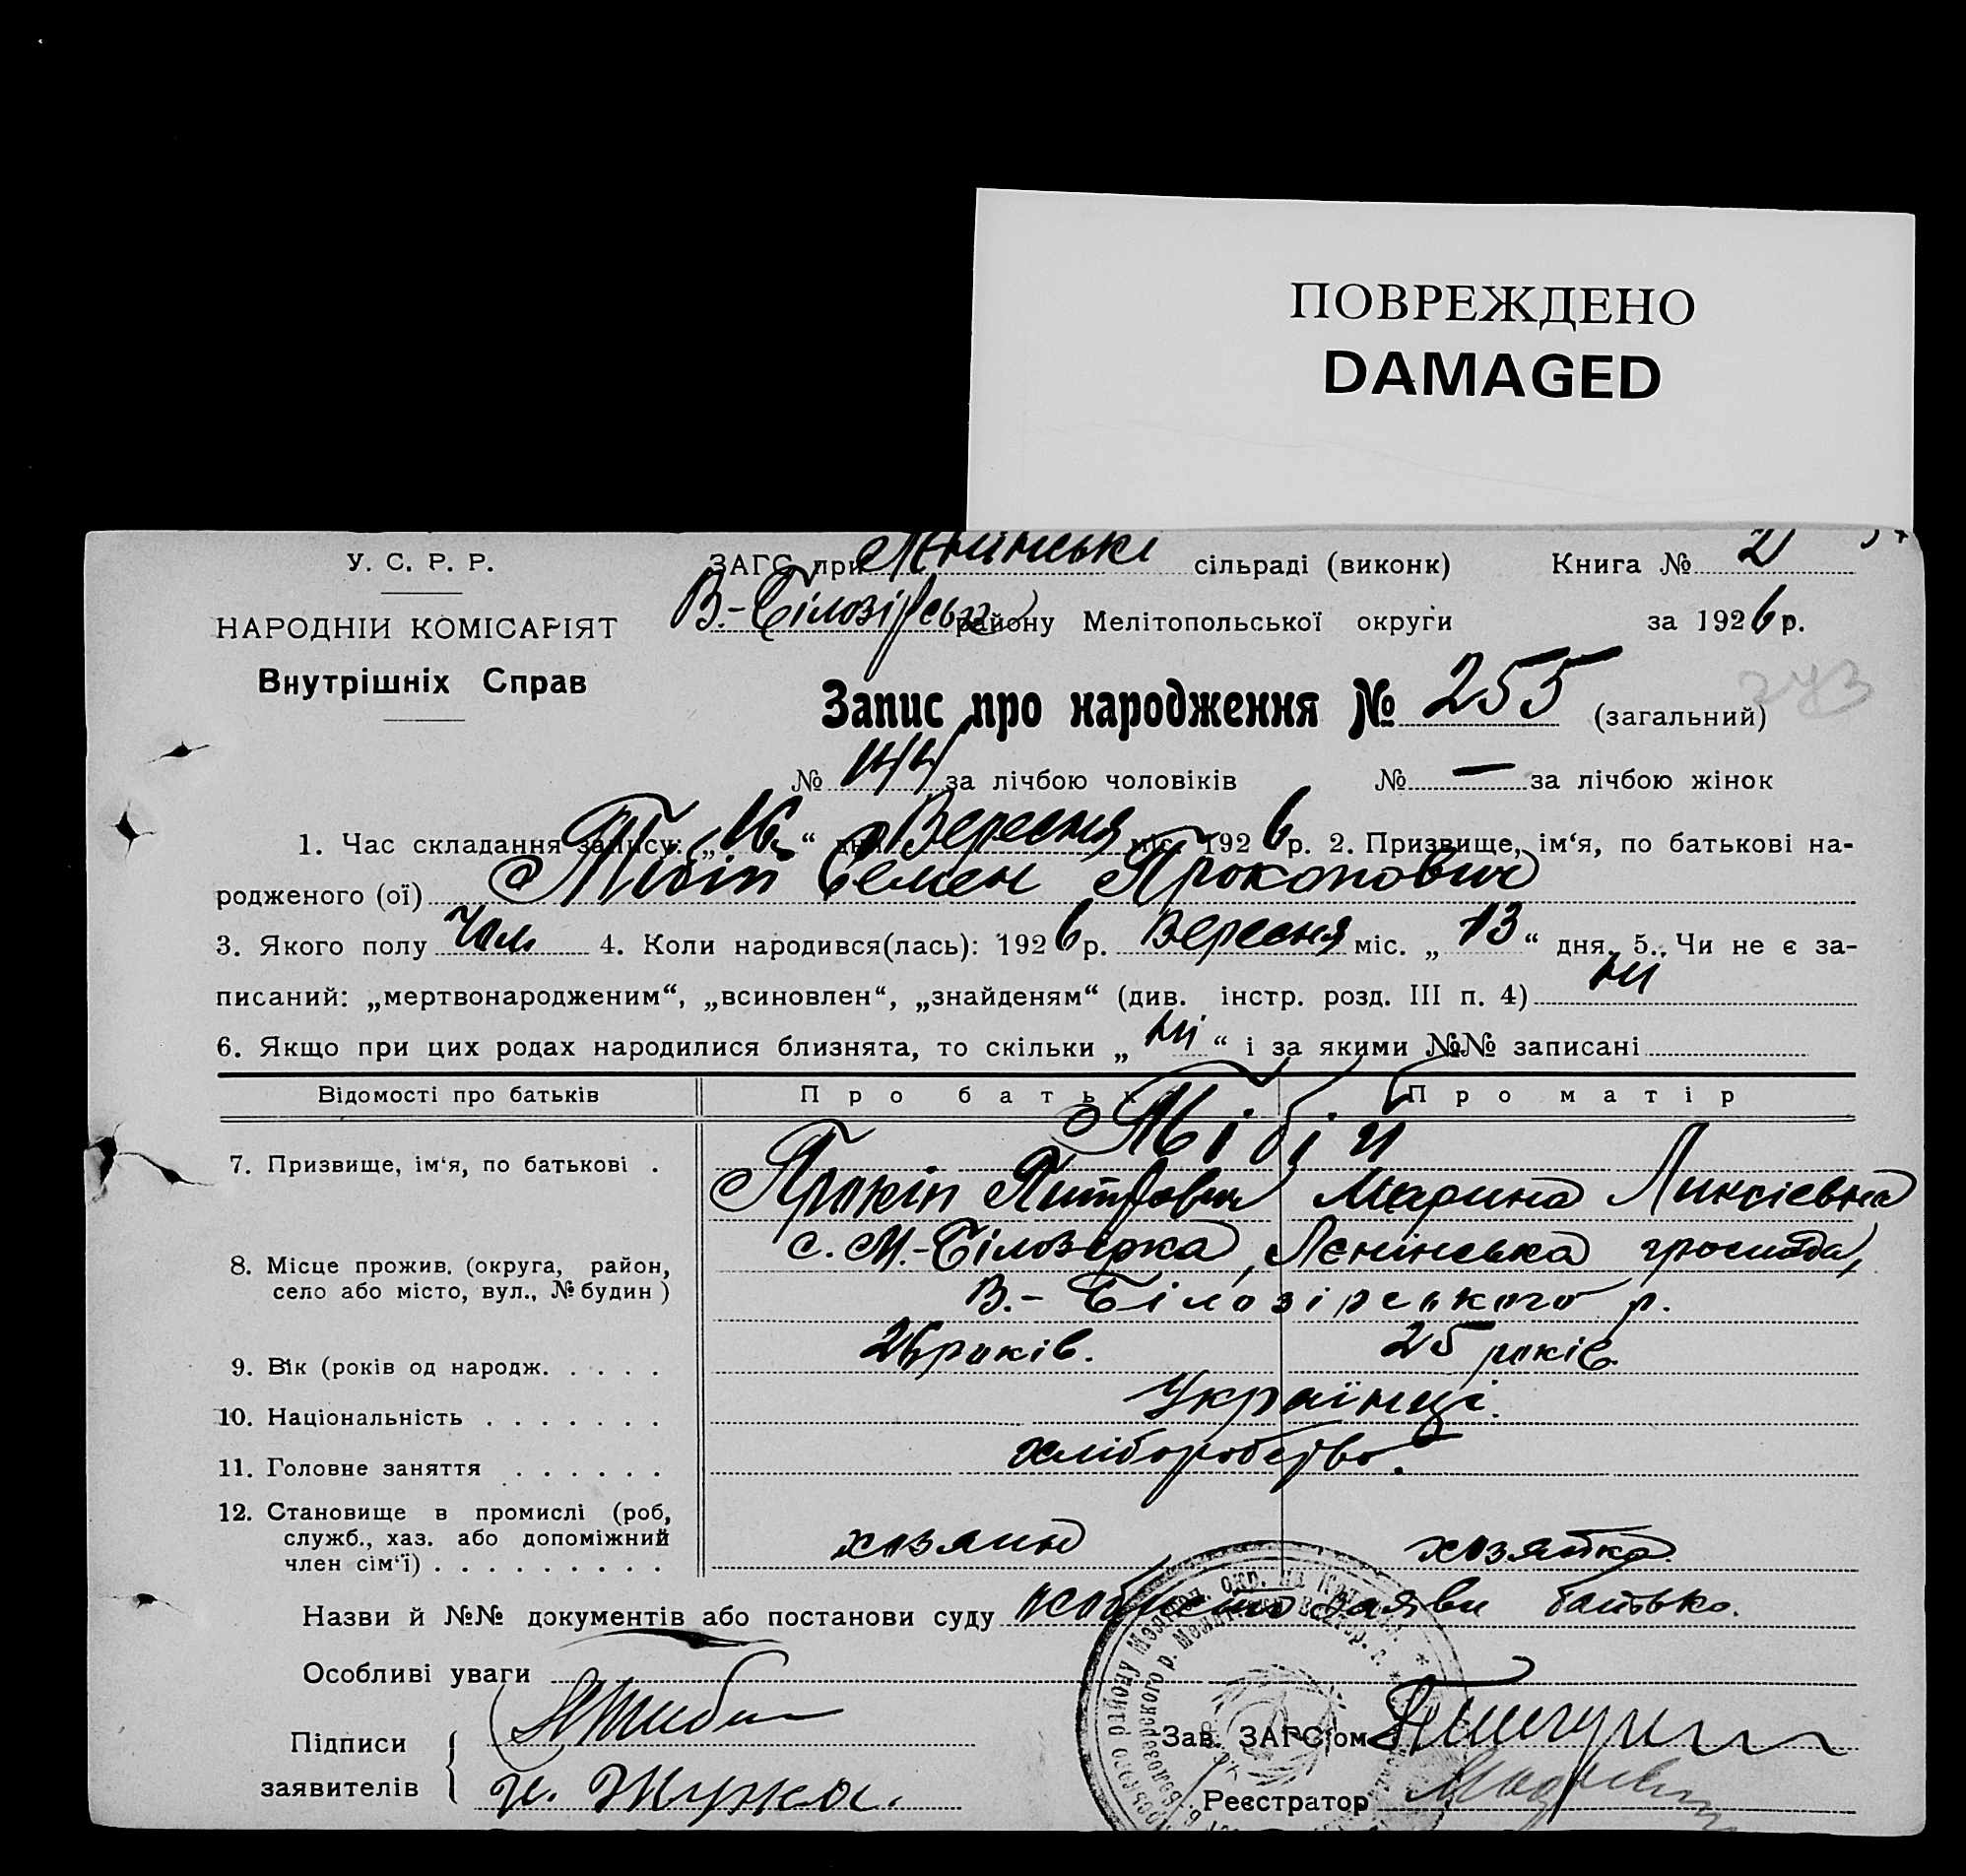 ПОВРЕЖДЕНО
DAMAGED
У. С. Р. Р.
НАРОДНІЙ КОМІСАРІЯТ
Внутрішніх Справ
ЗАГС при сільраді (виконк) Книга № 2
В.-Білозірськ району Мелітопольської округи за 1926 р.
Запис про народження № 255 (загальний)
243
№ 144 за лічбою чоловіків № — за лічбою жінок
1. Час складання запису: „16“ дня Вересня міс. 1926 р. 2. Призвище, ім‘я, по батькові на-
родженого (ої) Семен Прокопович
3. Якого полу Чол. 4. Коли народився(лась): 1926 р. Вересня міс. „13“ дня. 5. Чи не є за-
писаний: „мертвонародженим“, „всиновлен“, „знайденям“ (див. інстр. розд. III п. 4) ні
6. Якщо при цих родах народилися близнята, то скільки „ні“ і за якими №№ записані
Відомості про батьків Про батьк Про матір
7. Призвище, ім‘я, по батькові .
Прокіп Петрович Марина Ликсієвна
8. Місце прожив. (округа, район, село або місто, вул., № будин)
с. М.-Білозерка, Лєнінська громада,
В.-Білозірського р.
9. Вік (років од народж. . . . . 26 років. 25 років.
10. Національність . . . . . . . Українці.
11. Головне заняття . . . . . . хліборобство.
12. Становище в промислі (роб,
служб., хаз. або допоміжний
член сім‘ї) . . . . . . . . . хозяин хозяйка.
Назви й №№ документів або постанови суду особисто заяви батько.
Особливі уваги
Підписи
заявителів
Зав. ЗАГС‘ом
Реєстратор